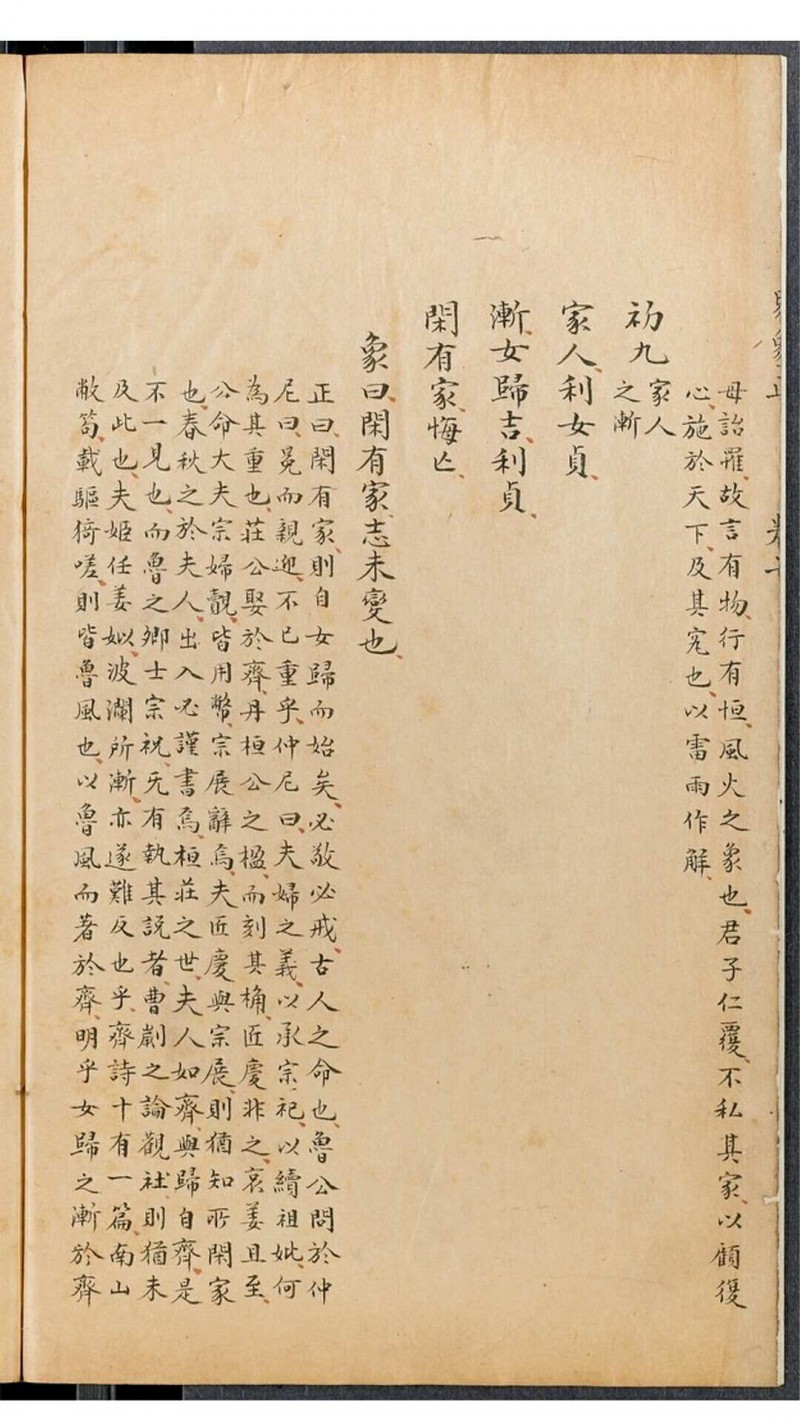 母詒罹故言有物行有恒風火之象也君子仁覆不私其家以顧復
心施於天下及其究也以雷雨作解
初九家人之漸
家人利女貞
漸女歸吉利貞
閑有家悔亡
象曰閑有家志未變也
正曰閑有家則自女歸而始矣必敬必戒古人之命也魯公問於仲
尼曰冕而親迎不已重乎仲尼曰夫婦之義以承宗祀以續祖妣何
為其重也莊公娶於齊丹桓公之楹而刻其桷匠慶非之哀姜且至
公命大夫宗婦覿皆用幣宗展辭焉夫匠慶與宗展則猶知所閑家
也春秋之於夫人出入必謹書焉桓莊之世夫人如齊與歸自齊是
不一見也而魯之卿士宗祝旡有執其説者曹劌之論觀社則猶未
及此也夫姬任姜姒波瀾所漸亦遂難反也乎齊詩十有一篇南山
敝笱載驅猗嗟則皆魯風也以魯風而著於齊明乎女歸之漸於齊